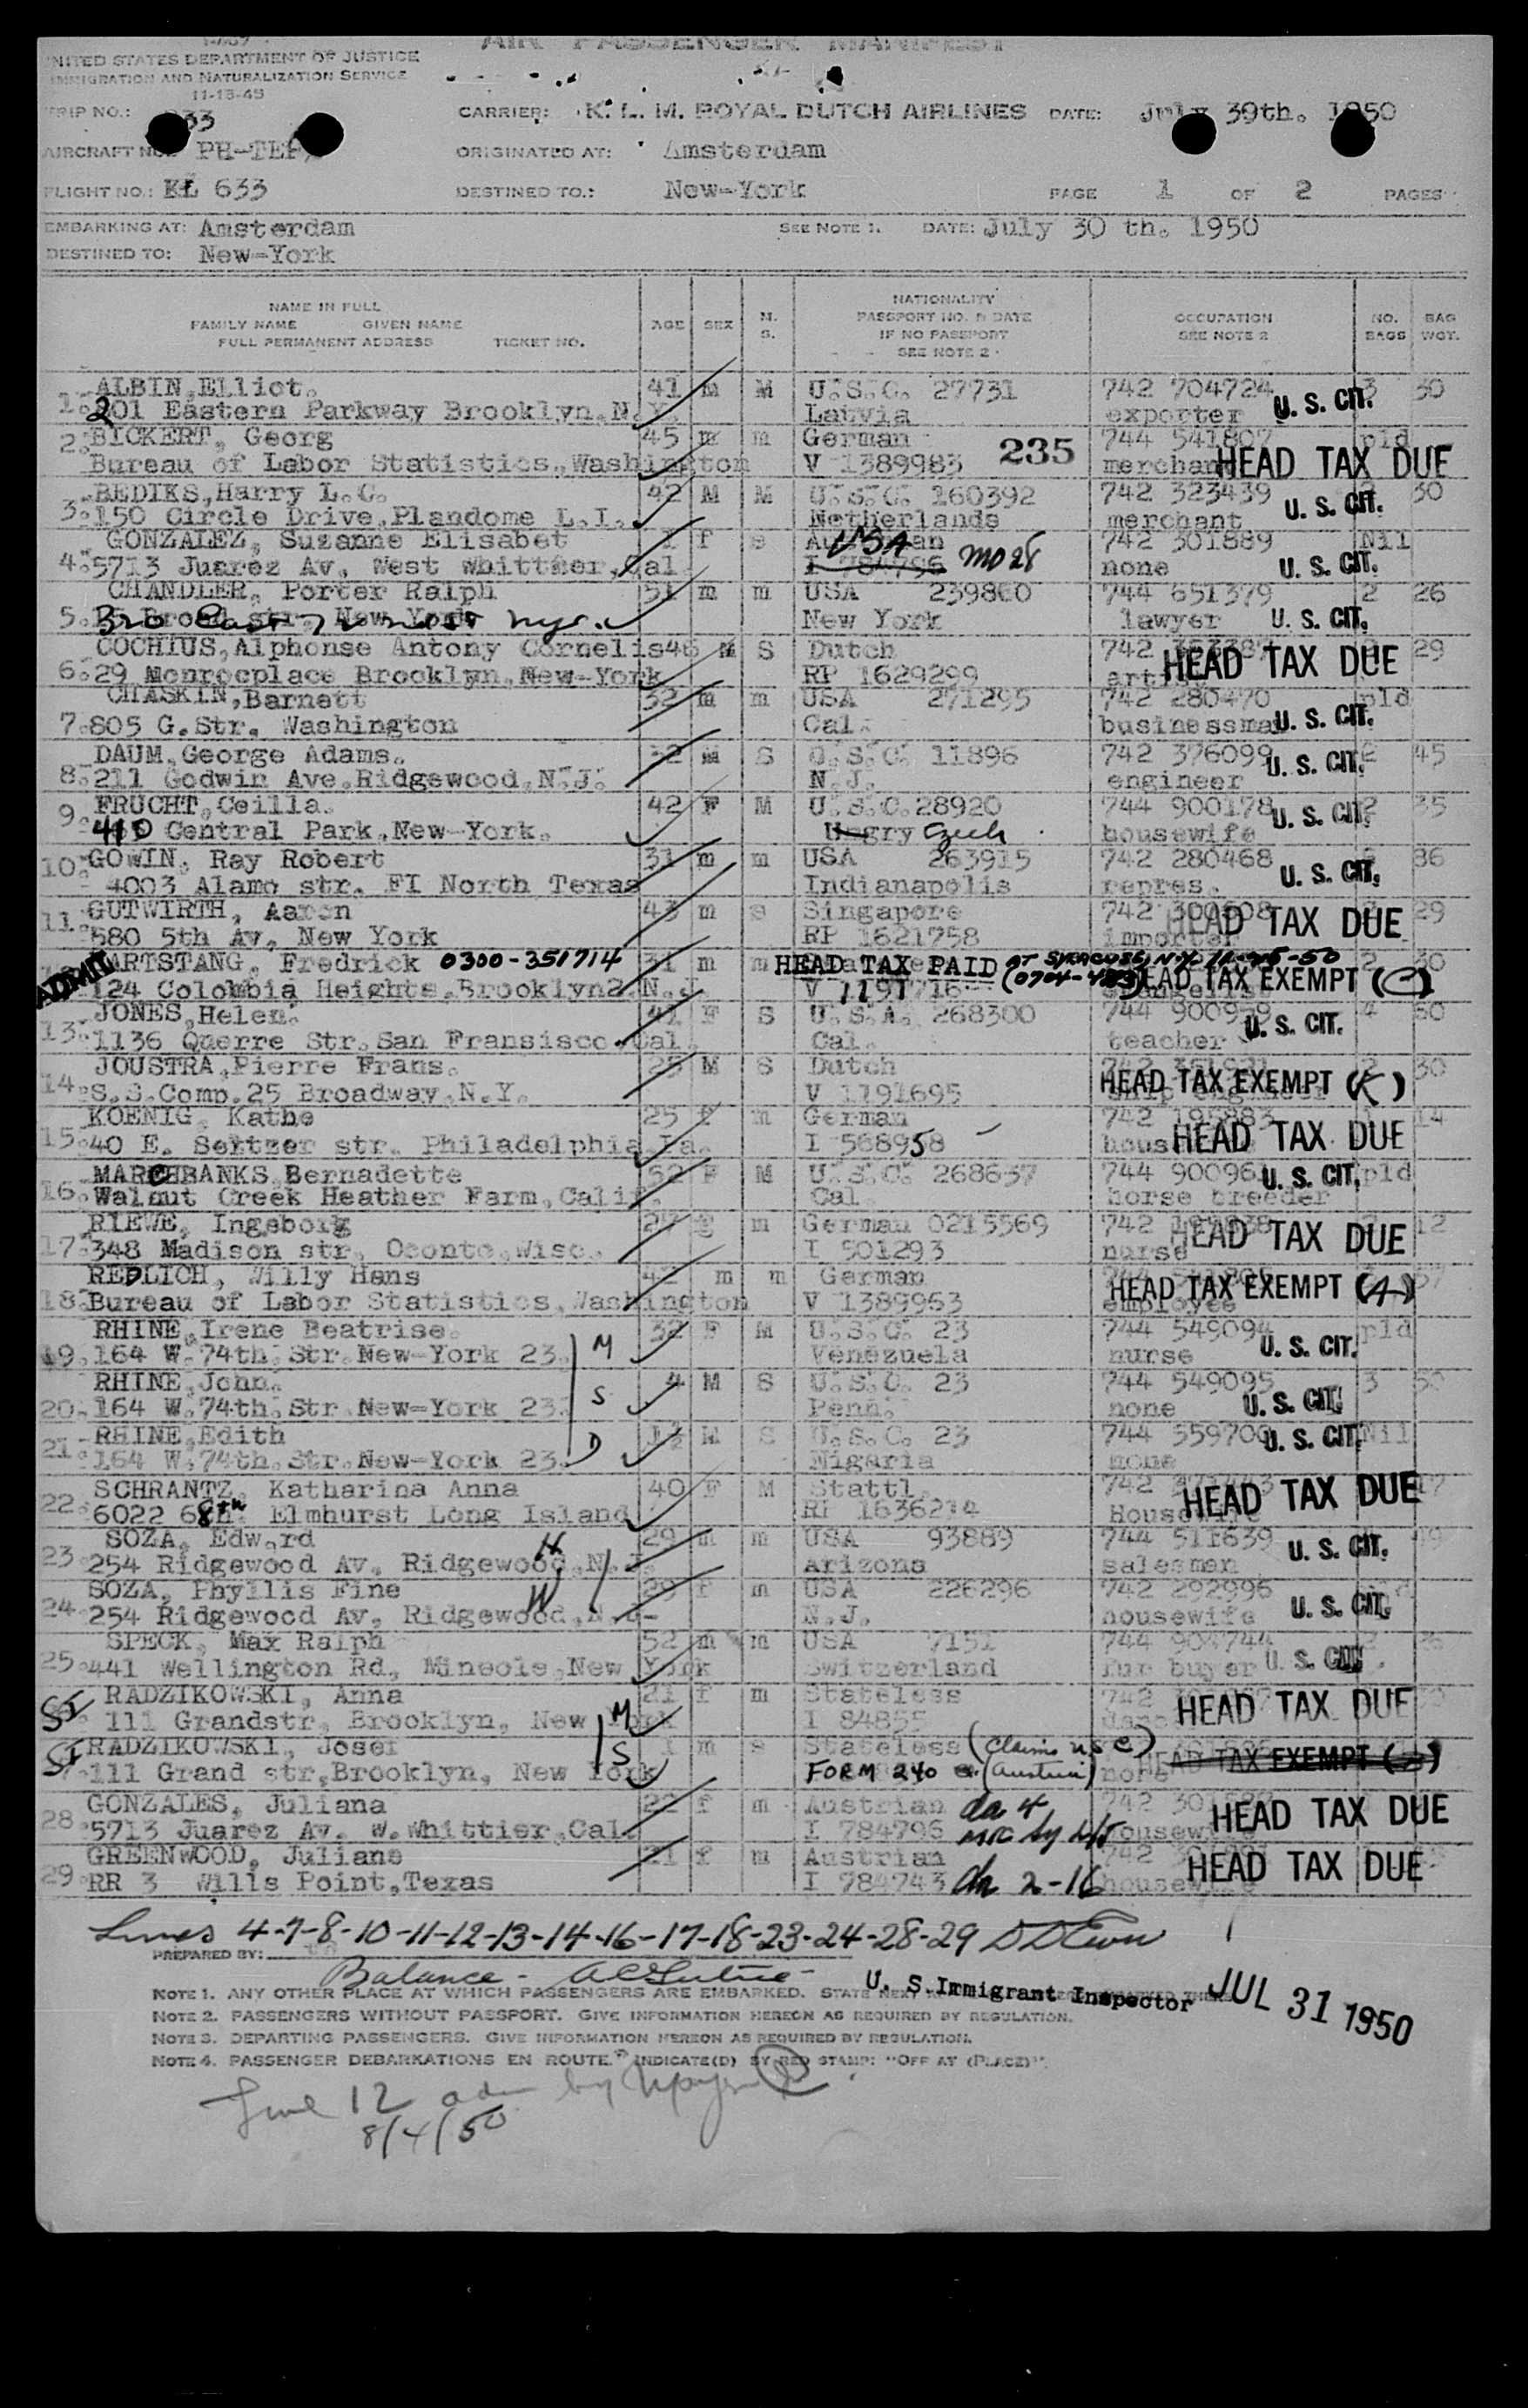 AIR PASSENGER MANIFEST
UNITED STATES DEPARTMENT OF JUSTICE
IMMIGRATION AND NATURALIZATION SERVICE
11-15-49
TRIP NO.: 633 CARRIER: K. L. M. ROYAL DUTCH AIRLINES DATE: July 30th. 1950
AIRCRAFT NO. PH-TEP ORIGINATED AT: Amsterdam
FLIGHT NO.: KL 633 DESTINED TO.: New-York PAGE 1 OF 2 PAGES
EMBARKING AT: Amsterdam SEE NOTE 1. DATE: July 30 th. 1950
DESTINED TO: New-York
NAME IN FULL
FAMILY NAME GIVEN NAME
FULL PERMANENT ADDRESS TICKET NO.
AGE SEX M. S.
NATIONALITY
PASSPORT NO. & DATE
IF NO PASSPORT
SEE NOTE 2
OCCUPATION
SEE NOTE 2
NO. BAGS BAG WGT.
ALBIN, Elliot. 41 m M U.S.C. 27731 742 704724 3 30
1. 201 Eastern Parkway Brooklyn, N.Y. Latvia exporter U. S. CIT.
2. BICKERT, Georg 45 m m German 235 744 541807 pld
Bureau of Labor Statistics, Washington V 1389983 merchant HEAD TAX DUE
BEDIKS, Harry L.C. 42 M M U.S.C. 160392 742 323439 30
3. 150 Circle Drive, Plandome L.I. Netherlands merchant U. S. CIT.
GONZALEZ, Suzanne Elisabet 1 f s USA 742 301889 Nil
4. 5713 Juarez Av, West Whittier, Cal I 784796 none U. S. CIT.
CHANDLER, Porter Ralph 51 m m USA 239860 744 651379 2 26
5. New York New York lawyer U. S. CIT.
COCHIUS, Alphonse Antony Cornelis 46 M S Dutch 742 29
6. 29 Monroeplace Brooklyn, New-York RP 1629299 HEAD TAX DUE
CHASKIN, Barnett 32 m m USA 271295 742 280470 pld
7. 805 G.Str. Washington Cal. businessman U. S. CIT.
DAUM, George Adams. 32 M S U.S.C. 11896 742 376099 2 45
8. 211 Godwin Ave. Ridgewood, N.J. N.J. engineer U. S. CIT.
9. FRUCHT, Ceilla. 42 F M U.S.C. 28920 744 900178 2 35
410 Central Park, New-York. Ungry Czech housewife U. S. CIT.
10. GOWIN, Ray Robert 31 m m USA 263915 742 280468 86
4003 Alamo str. FI North Texas Indianapolis repres. U. S. CIT.
11. GUTWIRTH, Aaron 43 m s Singapore 742 29
580 5th Av, New York RP 1621758 importer HEAD TAX DUE
ADMIT HARTSTANG, Fredrick 0300-351714 31 m m HEAD TAX PAID AT SYRACUSE, N.Y. 2 30
124 Colombia Heights, Brooklyn 2, N.J. HEAD TAX EXEMPT (C)
JONES, Helen. 41 F S U.S.A. 268300 744 900959 4 50
13. 1136 Querre Str. San Fransisco. Cal. Cal. teacher U. S. CIT.
JOUSTRA, Pierre Frans. 25 M S Dutch 30
14. S.S.Comp. 25 Broadway, N.Y. V 1191695 HEAD TAX EXEMPT (C)
KOENIG, Kathe 25 f m German 742 195883 1 14
15. 40 E. Seltzer str. Philadelphia, Pa. I 568958 HEAD TAX DUE
MARCHBANKS, Bernadette 52 F M U.S.C. 268637 744 90096 pld
16. Walnut Creek Heather Farm, Calif. Cal. horse breeder U. S. CIT.
RIEWE, Ingeborg 24 f m German 0215569 742 12
17. 348 Madison str, Oconto, Wisc. I 501293 nurse HEAD TAX DUE
REDLICH, Willy Hans 42 m m German 57
18. Bureau of Labor Statistics, Washington V 1389963 employee HEAD TAX EXEMPT (A)
RHINE, Irene Beatrise. 32 F M U.S.C. 23 744 549094 pld
19. 164 W. 74th. Str. New-York 23. M Venezuela nurse U. S. CIT.
RHINE, John. 4 M S U.S.C. 23 744 549095 3
20. 164 W. 74th. Str. New-York 23. S Penn. none U. S. CIT.
21. RHINE, Edith 1½ M S U.S.C. 23 744 559700 Nil
164 W. 74th. Str. New-York 23. D Nigaria none U. S. CIT.
SCHRANTZ, Katharina Anna 40 F M Stattl. 742 17
22. 6022 68th Elmhurst Long Island RP 1636214 Housewife HEAD TAX DUE
SOZA, Edward H 29 m m USA 93889 744 511639
23. 254 Ridgewood Av, Ridgewood, N.J. Arizona salesman U. S. CIT.
SOZA, Phyllis Fine W 29 f m USA 226296 742 292996
24. 254 Ridgewood Av, Ridgewood, N.J. N.J. housewife U. S. CIT.
SPECK, Max Ralph 52 m m USA 7151 744 904744
25. 441 Wellington Rd, Mineola, New York Switzerland fur buyer U. S. CIT.
SI RADZIKOWSKI, Anna 21 f m Stateless 742
111 Grandstr, Brooklyn, New York M I 84855 HEAD TAX DUE
SI RADZIKOWSKI, Josef 1 m s Stateless (Claims USC)
111 Grand str, Brooklyn, New York S FORM 240 (Austria) none HEAD TAX EXEMPT
GONZALES, Juliana 22 f m Austrian da 4 742
28. 5713 Juarez Av. W. Whittier, Cal. I 784796 housewife HEAD TAX DUE
GREENWOOD, Juliane 21 f m Austrian 742
29. RR 3 Wills Point, Texas I 784743 da 2-16 housewife HEAD TAX DUE
Lines 4-7-8-10-11-12-13-14-16-17-18-23-24-28-29
PREPARED BY:
Balance -
U. S. Immigrant Inspector JUL 31 1950
NOTE 1. ANY OTHER PLACE AT WHICH PASSENGERS ARE EMBARKED. STATE
NOTE 2. PASSENGERS WITHOUT PASSPORT. GIVE INFORMATION HEREON AS REQUIRED BY REGULATION.
NOTE 3. DEPARTING PASSENGERS. GIVE INFORMATION HEREON AS REQUIRED BY REGULATION.
NOTE 4. PASSENGER DEBARKATIONS EN ROUTE. INDICATE(D) BY RED STAMP: "OFF AT (PLACE)".
Line 12 adm by
8/4/50